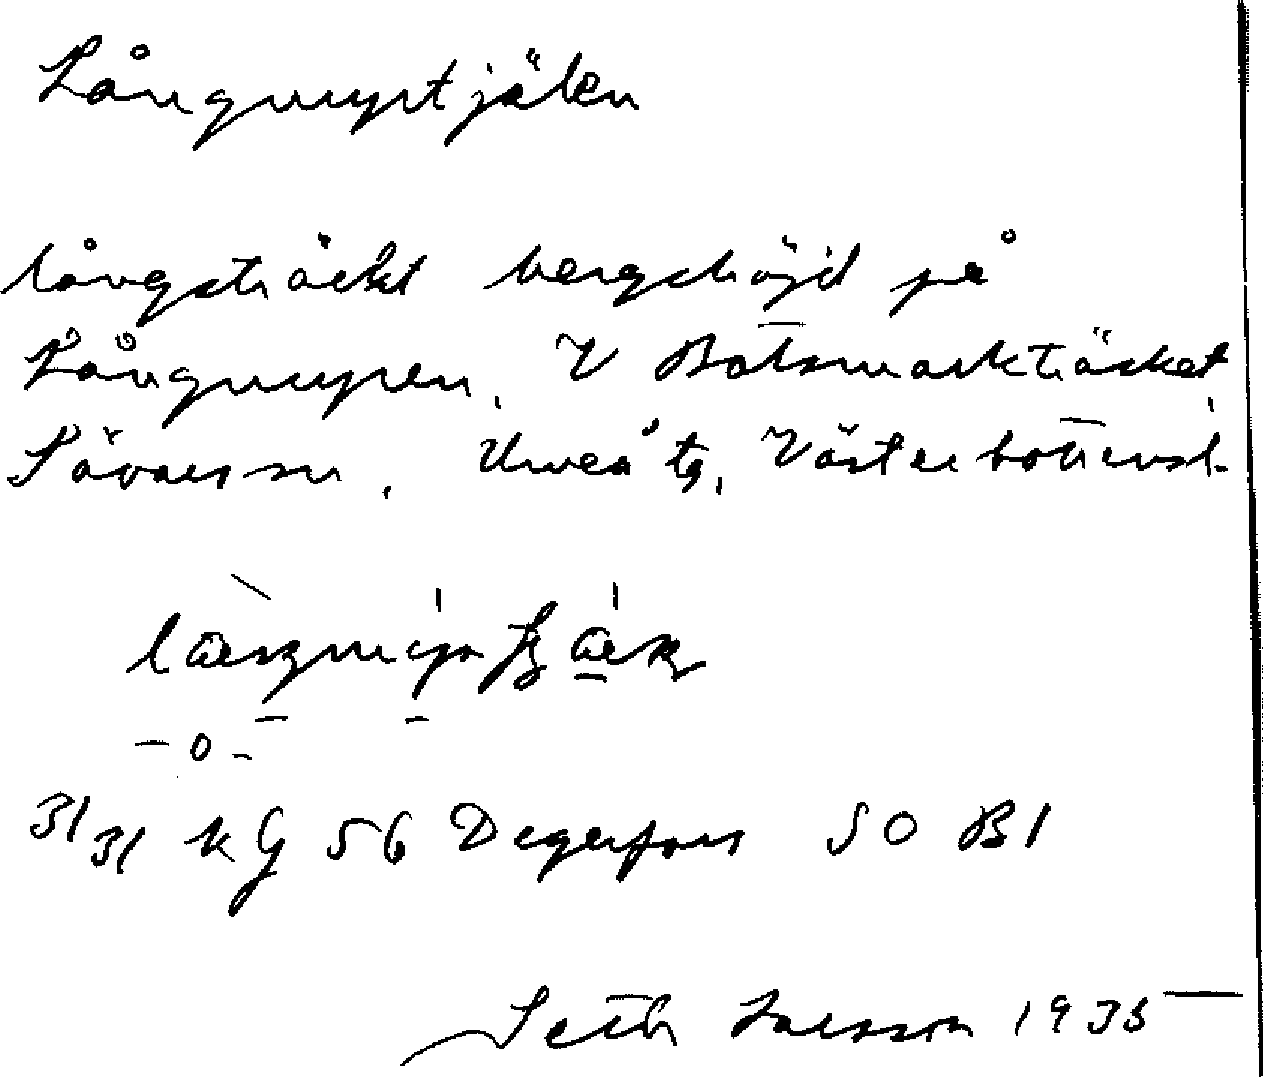 Långmyrtjälen
långsträckt bergshöjd på
Långmyren, V Botsmarkträsket,
Sävars sn, Umeå tg, Västerbottens l.
- o -
31/31 kG 56 Degerfors SO B1
Seth Larsson 1935